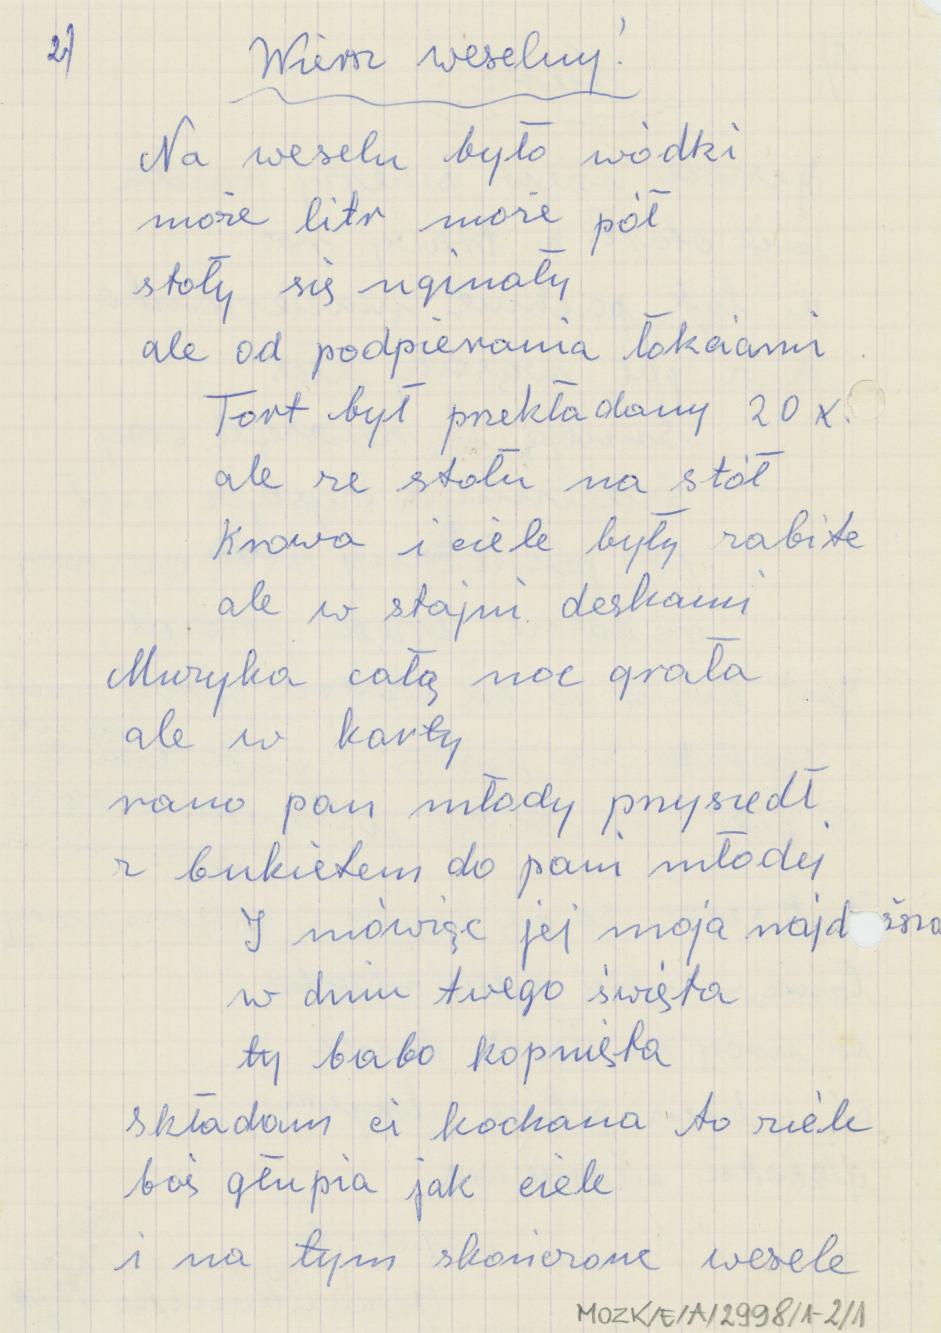 2.)
Wiersz weselny!
Na weselu było wódki
może litr może pół
stoły się uginały
ale od podpierania łokciami
Tort był przekładany 20 x.
ale ze stołu na stół
Krowa i ciele były zabite
ale w stajni deskami
Muzyka całą noc grała
ale w karty
rano pan młody przyszedł
z bukietem do pani młodej
I mówiąc jej moja
w dniu twego święta
ty babo kopnięta
składam ci kochana to ziele
boś głupia jak ciele
i na tym skończone wesele
MOZK/E/A/2998/1-2/1